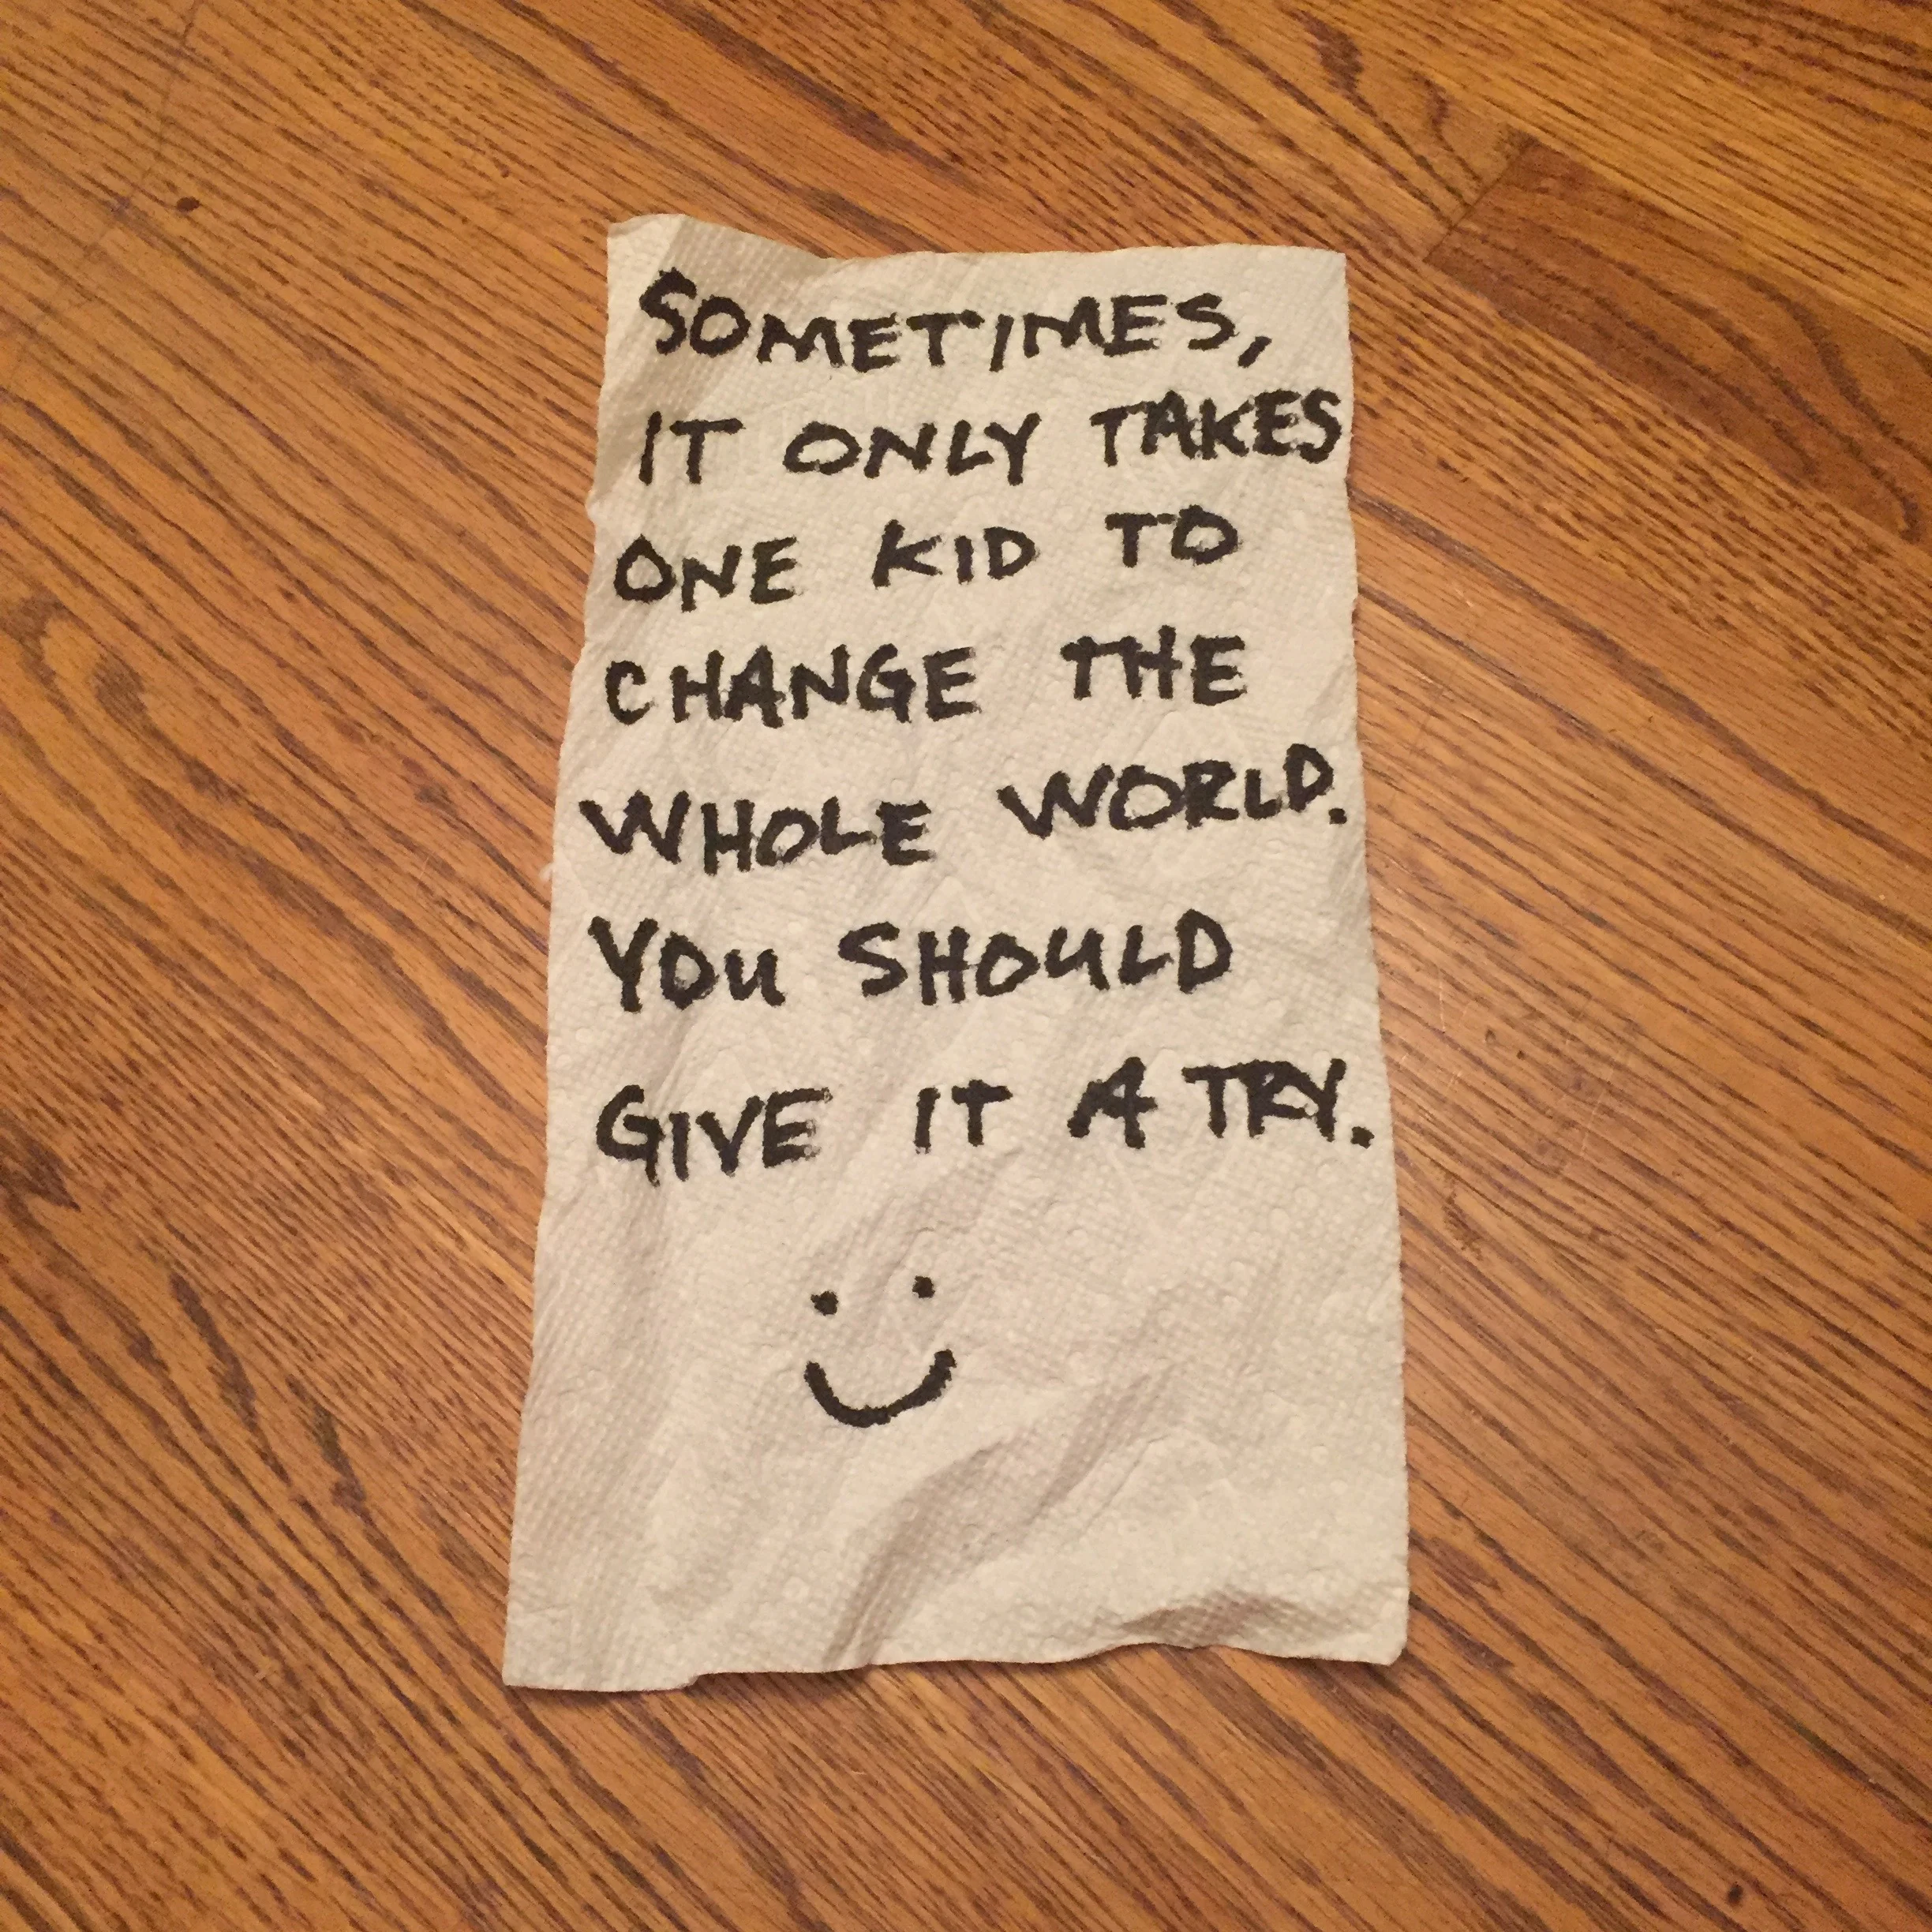 SOMETIMES,
IT ONLY TAKES
ONE KID TO
CHANGE THE
WHOLE WORLD.
YOU SHOULD
GIVE IT A TRY.